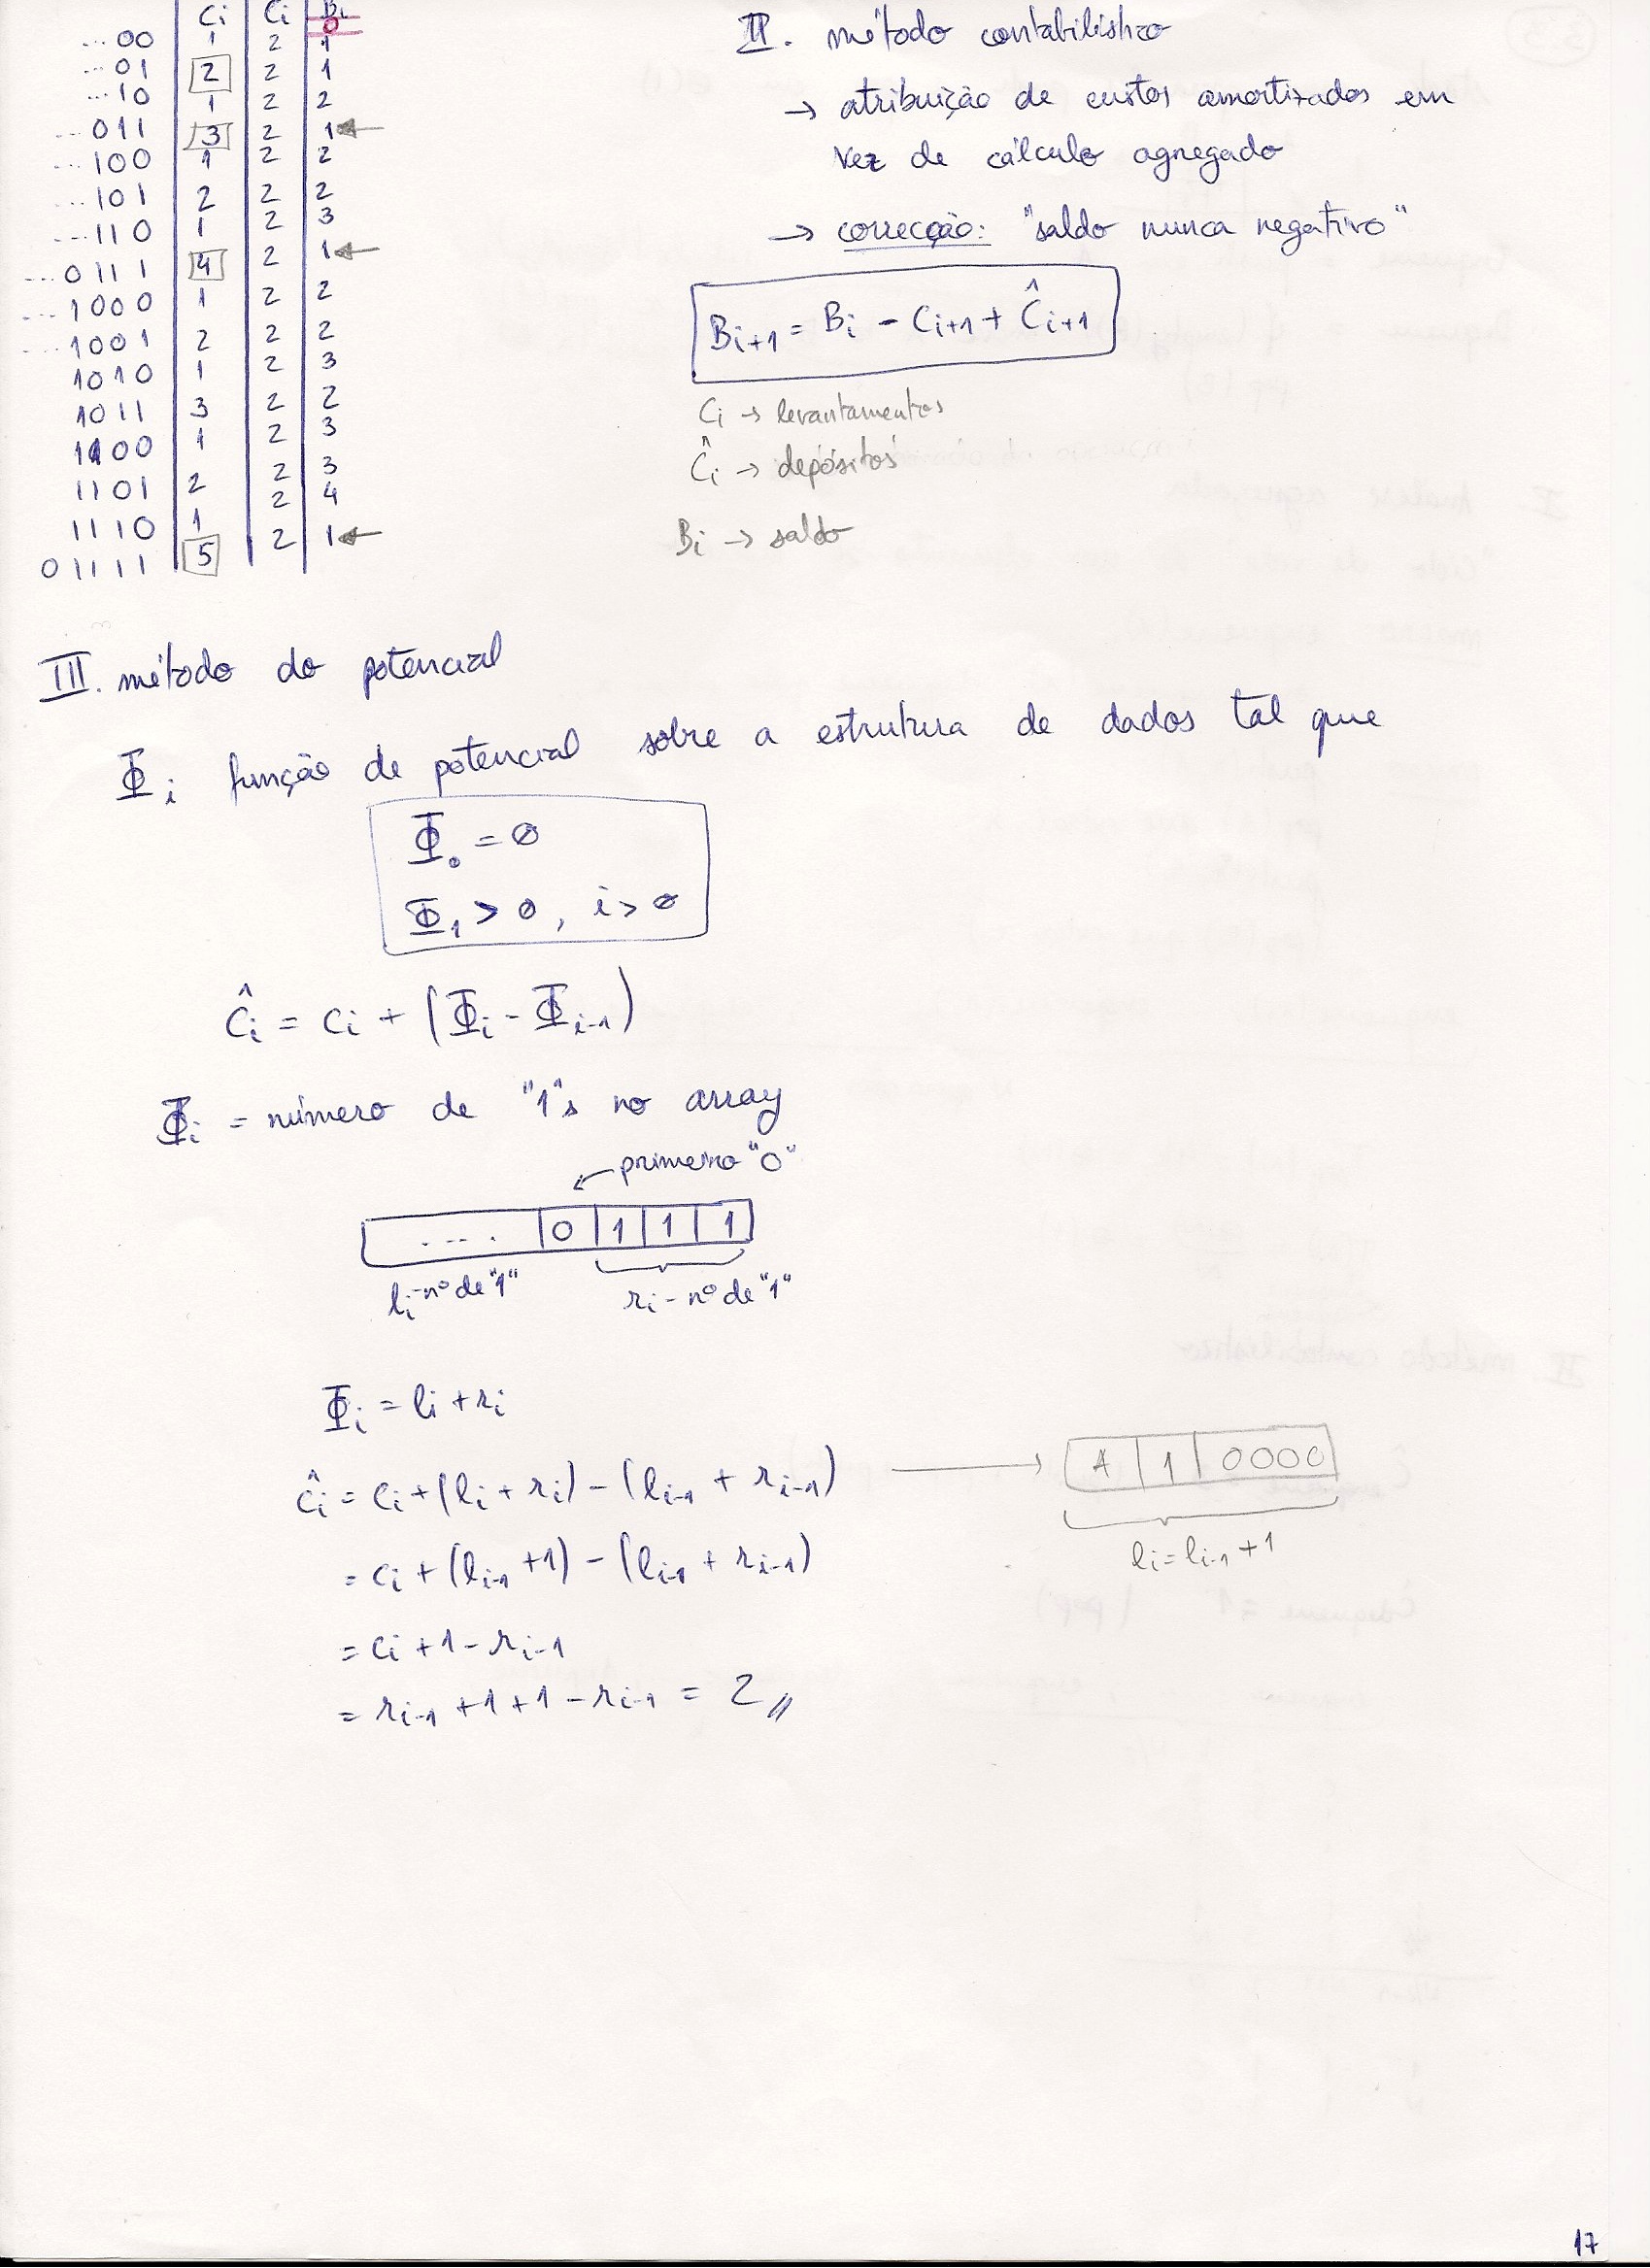 Ci | Ĉi | Bi
0
...00 | 1 | 2 | 1
...01 | 2 | 2 | 1
...10 | 1 | 2 | 2
...011 | 3 | 2 | 1 ←
...100 | 1 | 2 | 2
...101 | 2 | 2 | 2
...110 | 1 | 2 | 3
...0111 | 4 | 2 | 1 ←
...1000 | 1 | 2 | 2
...1001 | 2 | 2 | 2
1010 | 1 | 2 | 3
1011 | 3 | 2 | 2
1100 | 1 | 2 | 3
1101 | 2 | 2 | 3
1110 | 1 | 2 | 4
01111 | 5 | 2 | 1 ←
II. método contabilístico
→ atribuição de custos amortizados em
vez de cálculo agregado
→ correcção: "saldo nunca negativo"
Bi+1 = Bi - Ci+1 + Ĉi+1
Ci → levantamentos
Ĉi → depósitos
Bi → saldo
III. método do potencial
Φi função de potencial sobre a estrutura de dados tal que
Φ0 = 0
Φ1 > 0, i > 0
Ĉi = Ci + (Φi - Φi-1)
Φi = número de "1"s no array
← primeiro "0"
.... | 0 | 1 | 1 | 1
li - nº de "1" ri - nº de "1"
Φi = li + ri
Ĉi = Ci + (li + ri) - (li-1 + ri-1) → A | 1 | 0000
li = li-1 + 1
= Ci + (li-1 + 1) - (li-1 + ri-1)
= Ci + 1 - ri-1
= ri-1 + 1 + 1 - ri-1 = 2 //
17